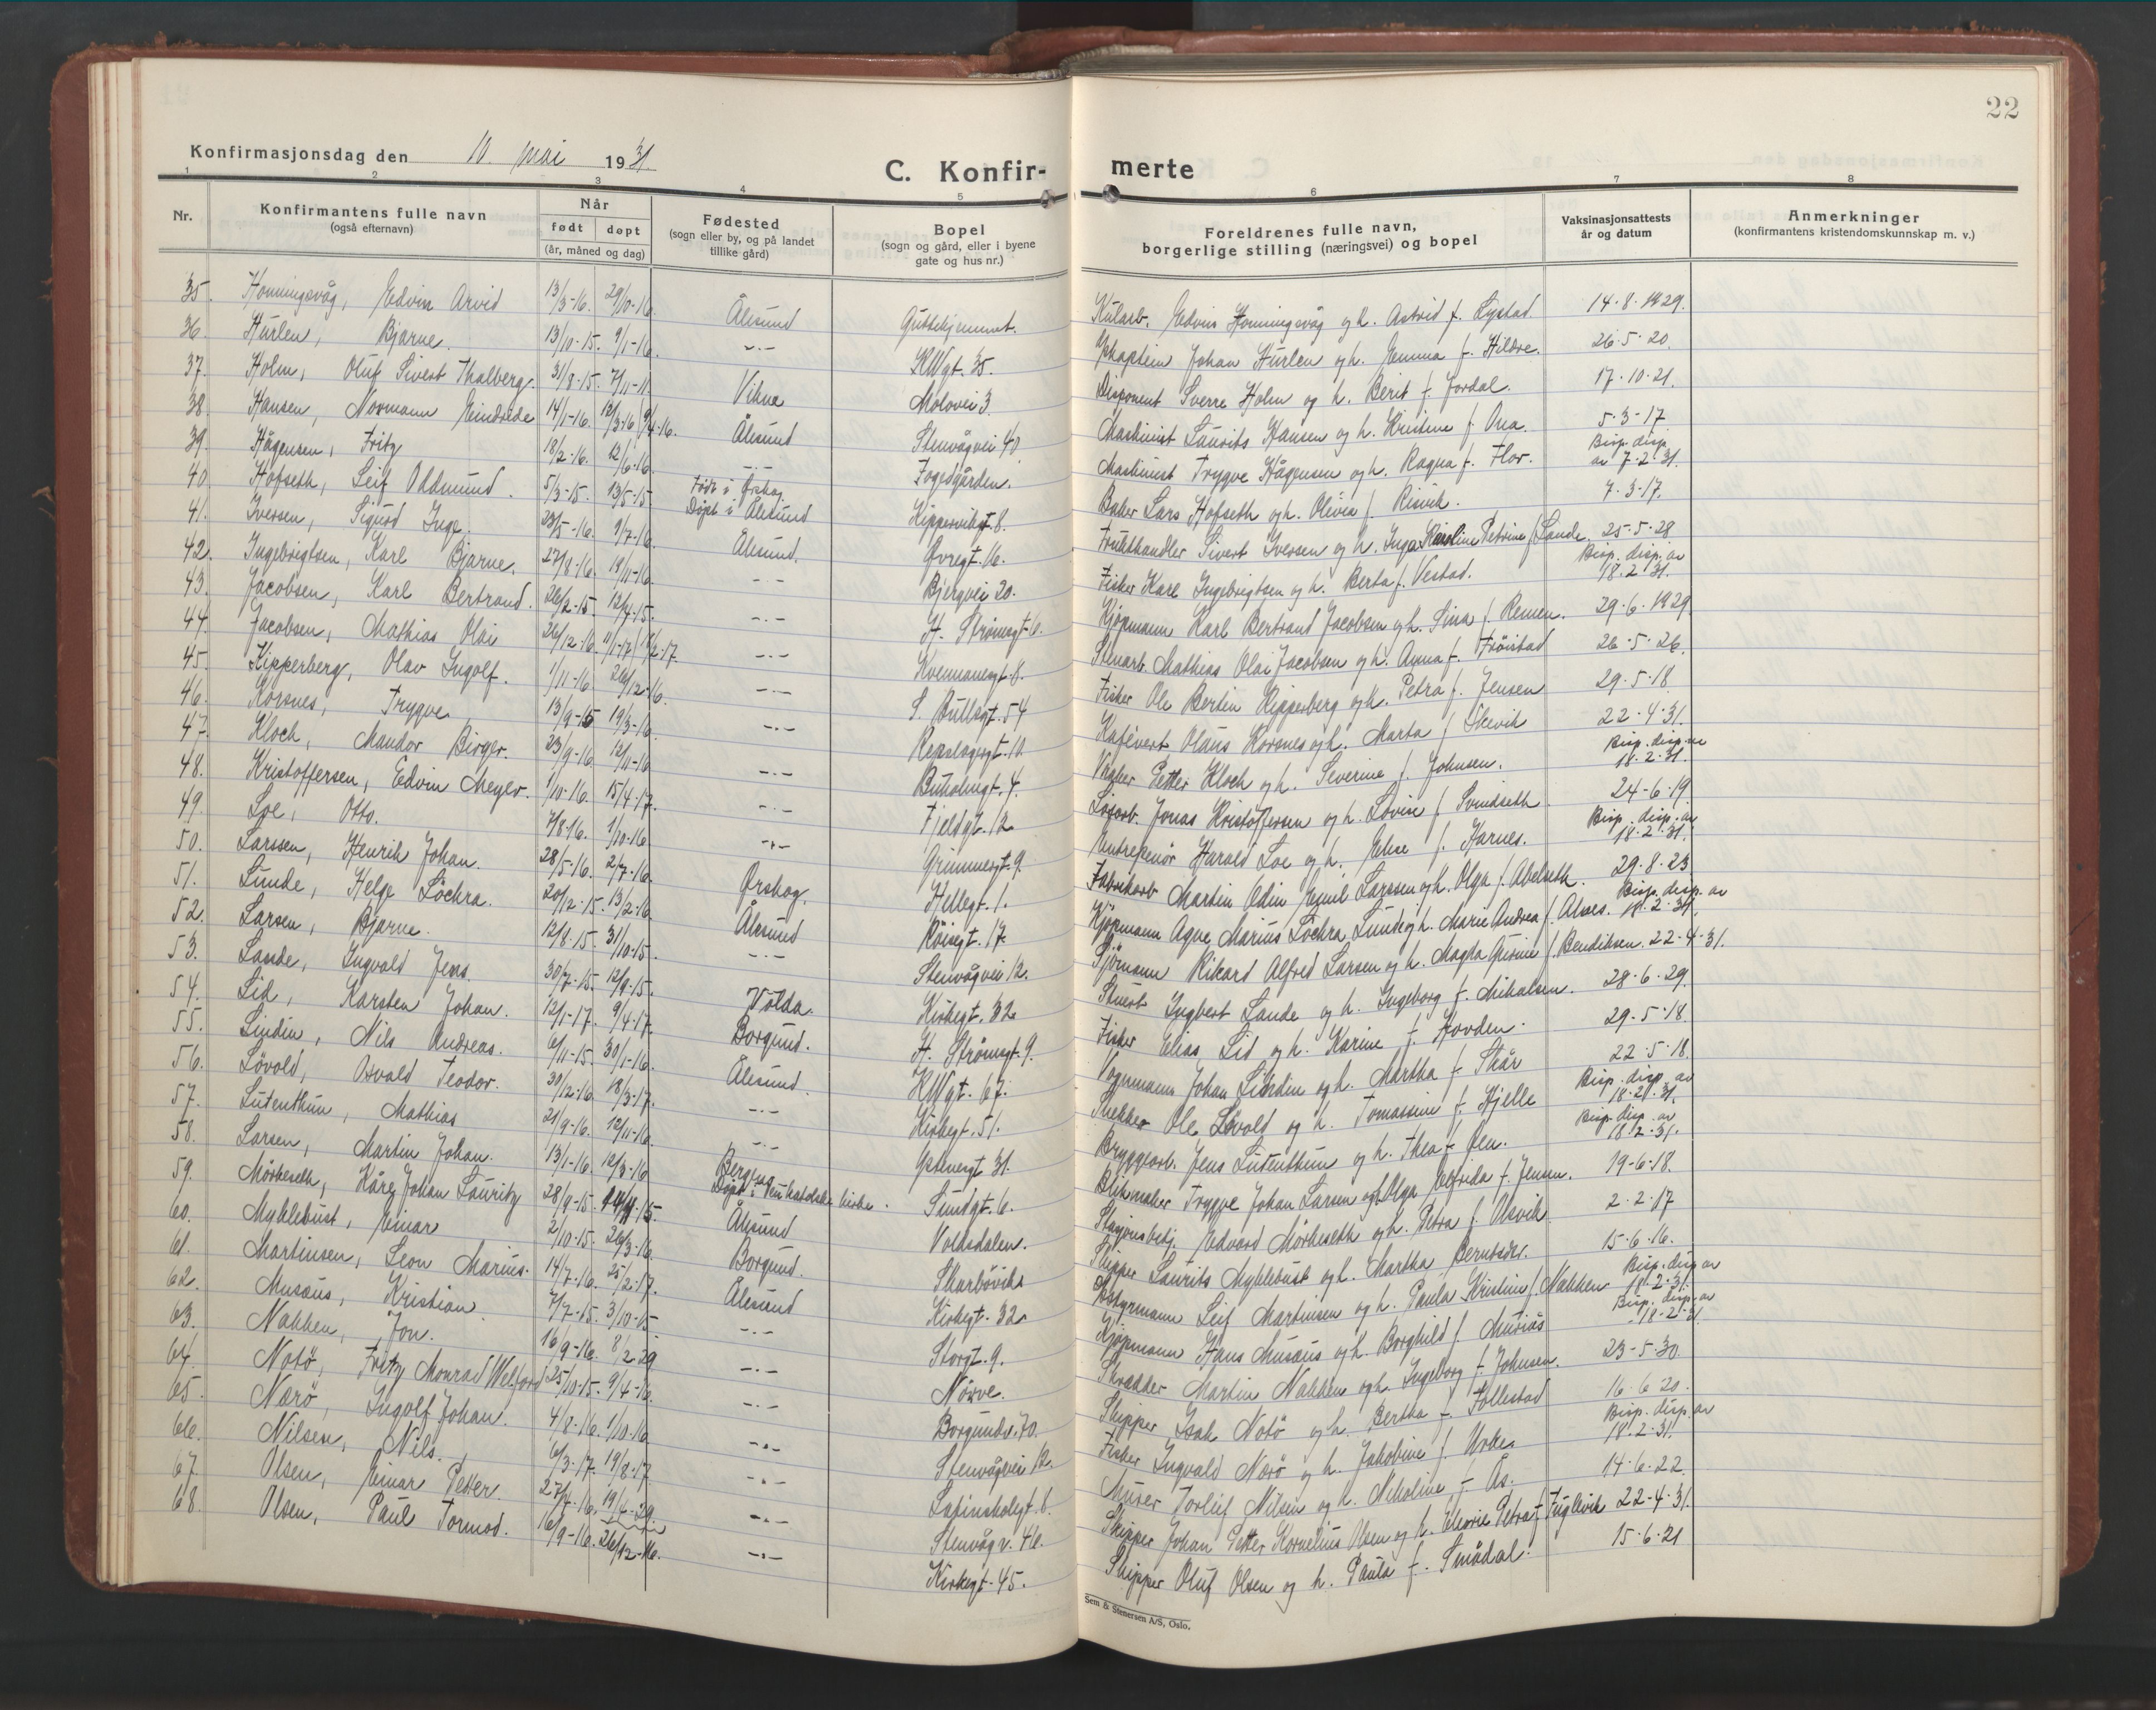 22
Konfirmasjonsdag den 10. mai 1931.
C. Konfir-
merte
1 2 3 4 5 6 7 8
Nr.
Konfirmantens fulle navn
(også efternavn)
Når
født døpt
(år, måned og dag)
Fødested
(sogn eller by, og på landet
tillike gård)
Bopel
(sogn og gård, eller i byene
gate og hus nr.)
Foreldrenes fulle navn,
borgerlige stilling (næringsvei) og bopel
Vaksinasjonsattests
år og datum
Anmerkninger
(konfirmantens kristendomskunnskap m. v.)
35. Honningsvåg, Edvin Arvid 13/3-16. 29/10-16. Ålesund Guttehjemmet. Kularb. Edvin Honningsvåg og h. Astrid f. Lystad 14-8-1929.
36. Hurlen, Bjarne. 13/10-15. 9/1-16. -"- KWgt. 35. Johan Hurlen og h. Emma f. Hildre. 26-5-20.
37. Holm, Oluf Sivert Thalberg. 31/8-15. 7/11-11. Vikna Molovei 3. Disponent Sverre Holm og h. Berit f. Jordal. 17-10-21.
38. Hansen, Normann Eindride 14/1-16. 12/3-16 9/4-16. Ålesund Stenvågvei 40 Maskinist Laurits Hansen og h. Kristine f. Ona. 5-3-17.
39. Hågensen, Fritz 18/2-16. 12/6-16. -"- Fogedgården. Maskinist Trygve Hågensen og h. Ragna f. Flor. Bisp. disp. av 7-2-31.
40. Hofseth, Leif Oddmund. 5/3-15. 13/5-15. Født i Ørskog. Døpt i Ålesund Kipperviksgt. 8. Baker Lars Hofseth og h. Olivia f. Risvik. 7-3-17.
41. Iversen, Sigurd Inge. 23/5-16. 9/7-16. Ålesund. Øvregt. 16. Frukthandler Sivert Iversen og h. Inga Karoline Petrine f. Lande. 25-5-28
42. Ingebrigtsen, Karl Bjarne. 27/8-16. 19/11-16. -"- Bjergvei 20. Fisker Karl Ingebrigtsen og h. Berta f. Vestad. Bisp. disp. av 18-2-31.
43. Jacobsen, Karl Bertrand. 26/2-15. 12/4-15. -"- H. Strømsgt. 6. Kjøpmann Karl Bertrand Jacobsen og h. Sina f. Remen. 29-6-1929
44. Jacobsen, Mathias Olai 26/12-16. 11/1-17. 18/2-17. -"- Kvennavegt. 8. Stenarb. Mathias Olai Jacobsen og h. Anna f. Frøistad 26-5-26.
45. Kipperberg, Olav Ingolf. 1/11-16 26/12-16. -"- S. Bullsgt. 54 Fisker Ole Bertin Kipperberg og h. Petra f. Jensen 29-5-18.
46. Korsnes, Trygve 13/9-15 19/3-16. -"- Repslagergt. 10. Kafévert Olaus Korsnes og h. Marta f. Slevik 22-4-31.
47. Kloch, Mandor Birger. 23/9-16. 12/11-16 -"- Buholmgt. 4. Vraker Petter Kloch og h. Severine f. Johnsen. Bisp. disp. av 18-2-31.
48. Kristoffersen, Edvin Meyer. 1/10-16. 15/4-17. -"- Fjeldgt. 12 Løsarb. Jonas Kristoffersen og h. Lovise f. Svindseth. 24-6-19
49. Loe, Otto. 7/8-16. 1/10-16. -"- Grimmergt. 9. Entrepenør Harald Loe og h. Else f. Harnes. Bisp. disp. av 18-2-31.
50. Larssen, Henrik Johan. 28/5-16. 2/7-16. Ørskog. Hellegt. 1. Fabrikarb Martin Odin Emil Larssen og h. Olga f. Abelseth. 29-8-23
51. Lunde, Helge Löchra. 20/12-15. 13/2-16. Ålesund Røisegt. 17. Kjøpmann Agne Marius Löchra Lunde og h. Marie Andrea f. Alnes. Bisp. disp. av 18-2-31.
52. Larsen, Bjarne. 12/8-15. 31/10-15. -"- Stenvågvei 12. Sjømann Rikard Alfred Larsen og h. Magda Gurine f. Bendiksen. 22-4-31.
53. Lande, Ingvald Jens. 30/7-15. 12/9-15. Volda. Kirkegt. 32 Stuert Ingbert Lande og h. Ingeborg f. Mikalsen. 28-6-29.
54. Lid, Karsten Johan. 12/1-17. 9/4-17. Borgund. H. Strømsgt. 9. Fisker Elias Lid og h. Karine f. Hovden. 29-5-18.
55. Lindin, Nils Andreas. 6/11-15. 30/1-16. Ålesund. KWgt. 67. Vognmann Johan Lindin og h. Martha f. Skår 22-5-18.
56. Lövold, Osvald Teodor. 30/12-16. 18/3-17. -"- Kirkegt. 51. Snekker Ole Lövold og h. Tomassine f. Hjelle Bisp. disp. av 18-2-31.
57. Lutenthun, Mathias 21/9-16. 12/11-16. -"- 31. Bryggearb. Jens Lutenthun og h. Thea f. Øen. Bisp. disp. av 18-2-31.
58. Larsen, Martin Johan. 13/1-16. 12/3-16 Bergen Døpt i kirke. Sundgt. 6. Blikmaker Trygve Johan Larsen og h. Olga Elfrida f. Jensen. 19-6-18.
59. Mörkeseth, Kåre Johan Lauritz 28/9-15. 14/11-15. Ålesund Voldsdalen. Stasjonsbetj. Edvard Mörkeseth og h. Petra f. Aasvik 2-2-17
60. Myklebust, Einar 2/10-15. 26/3-16. Borgund. Skarbövik Skipper Laurits Myklebust og h. Martha Berntsdtr. 15-6-16.
61. Martinsen, Leon Marius. 14/7-16. 25/2-17. Ålesund Kirkegt. 32 Styrmann Leif Martinsen og h. Paula Kristine f. Nakken Bisp. disp. av 18-2-31.
62. Musæus, Kristian. 7/7-15. 3/10-15 -"- Storgt. 9. Kjøpmann Hans Musæus og h. Borghild f. Bisp. disp. av 18-2-31
63. Nakken, Jon. 16/9-16. 8/2-29 -"- Nörve. Skredder Martin Nakken og h. Ingeborg f. Johnsen. 23-5-30.
64. Notö, Fritz Monrad Welford 25/10-15. 9/4-16. -"- Borgundv. 70. Skipper Isak Notö og h. Bertha f. Follestad 16-6-20.
65. Narö, Ingolf Johan. 4/8-16. 1/10-16 -"- Stenvågvei 12. Fisker Ingvald Narö og h. Jakobine f. Urkes Bisp. disp. av 18-2-31.
66. Nilsen, Nils. 6/3-17. 19/8-17 -"- Latinskolegt. 8. Murer Torleif Nilsen og h. Nikoline f. Ås. 14-6-22.
67. Olsen, Einar Petter. 27/4-16. 19/4-29. -"- Stenvågv. 46. Skipper Johan Petter Kornelius Olsen og h. Marie Petra f. Fuglevik 22-4-31.
68. Olsen, Paul Tormod. 16/9-16. 26/12-16. -"- Kirkegt. 45. Skipper Oluf Olsen og h. Paula f. Smådal. 15-6-21
Sem & Stenersen A/S, Oslo.